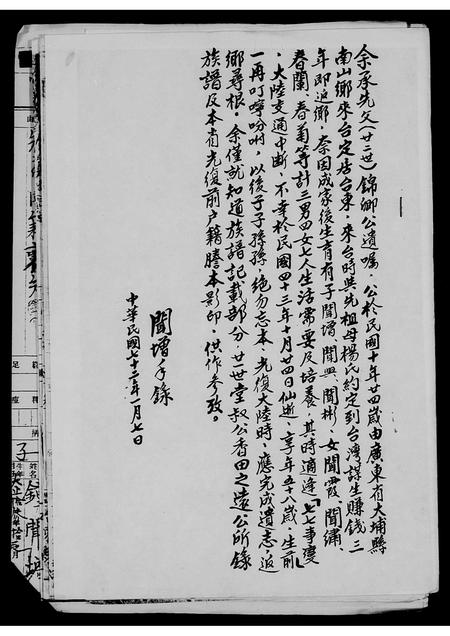 余承先父(廿二世)錦卿公遺囑，公於民國十年廿四歲由廣東省大埔縣
南山鄉來台定居台東，來台時與先祖母楊氏約定到台灣謀生賺錢三
年即返鄉，奈因成家後生育有子聞增、聞興、聞彬、女聞霞、聞繡、
春蘭、春菊等計三男四女七人生活需要及培養，其時適逢「七七事變」
，大陸交通中斷，不幸於民國四十三年十月廿四日仙逝，享年五十八歲，生前
一再叮嚀吩咐，以後子子孫孫，絕勿忘本，光復大陸時，應完成遺志，返
鄉尋根，余僅就知道族譜記載部分，廿一世堂叔公香田之遠公所錄
族譜及本省光復前戶籍謄本影印，供作參攷。
聞增手錄
中華民國七十三年一月七日